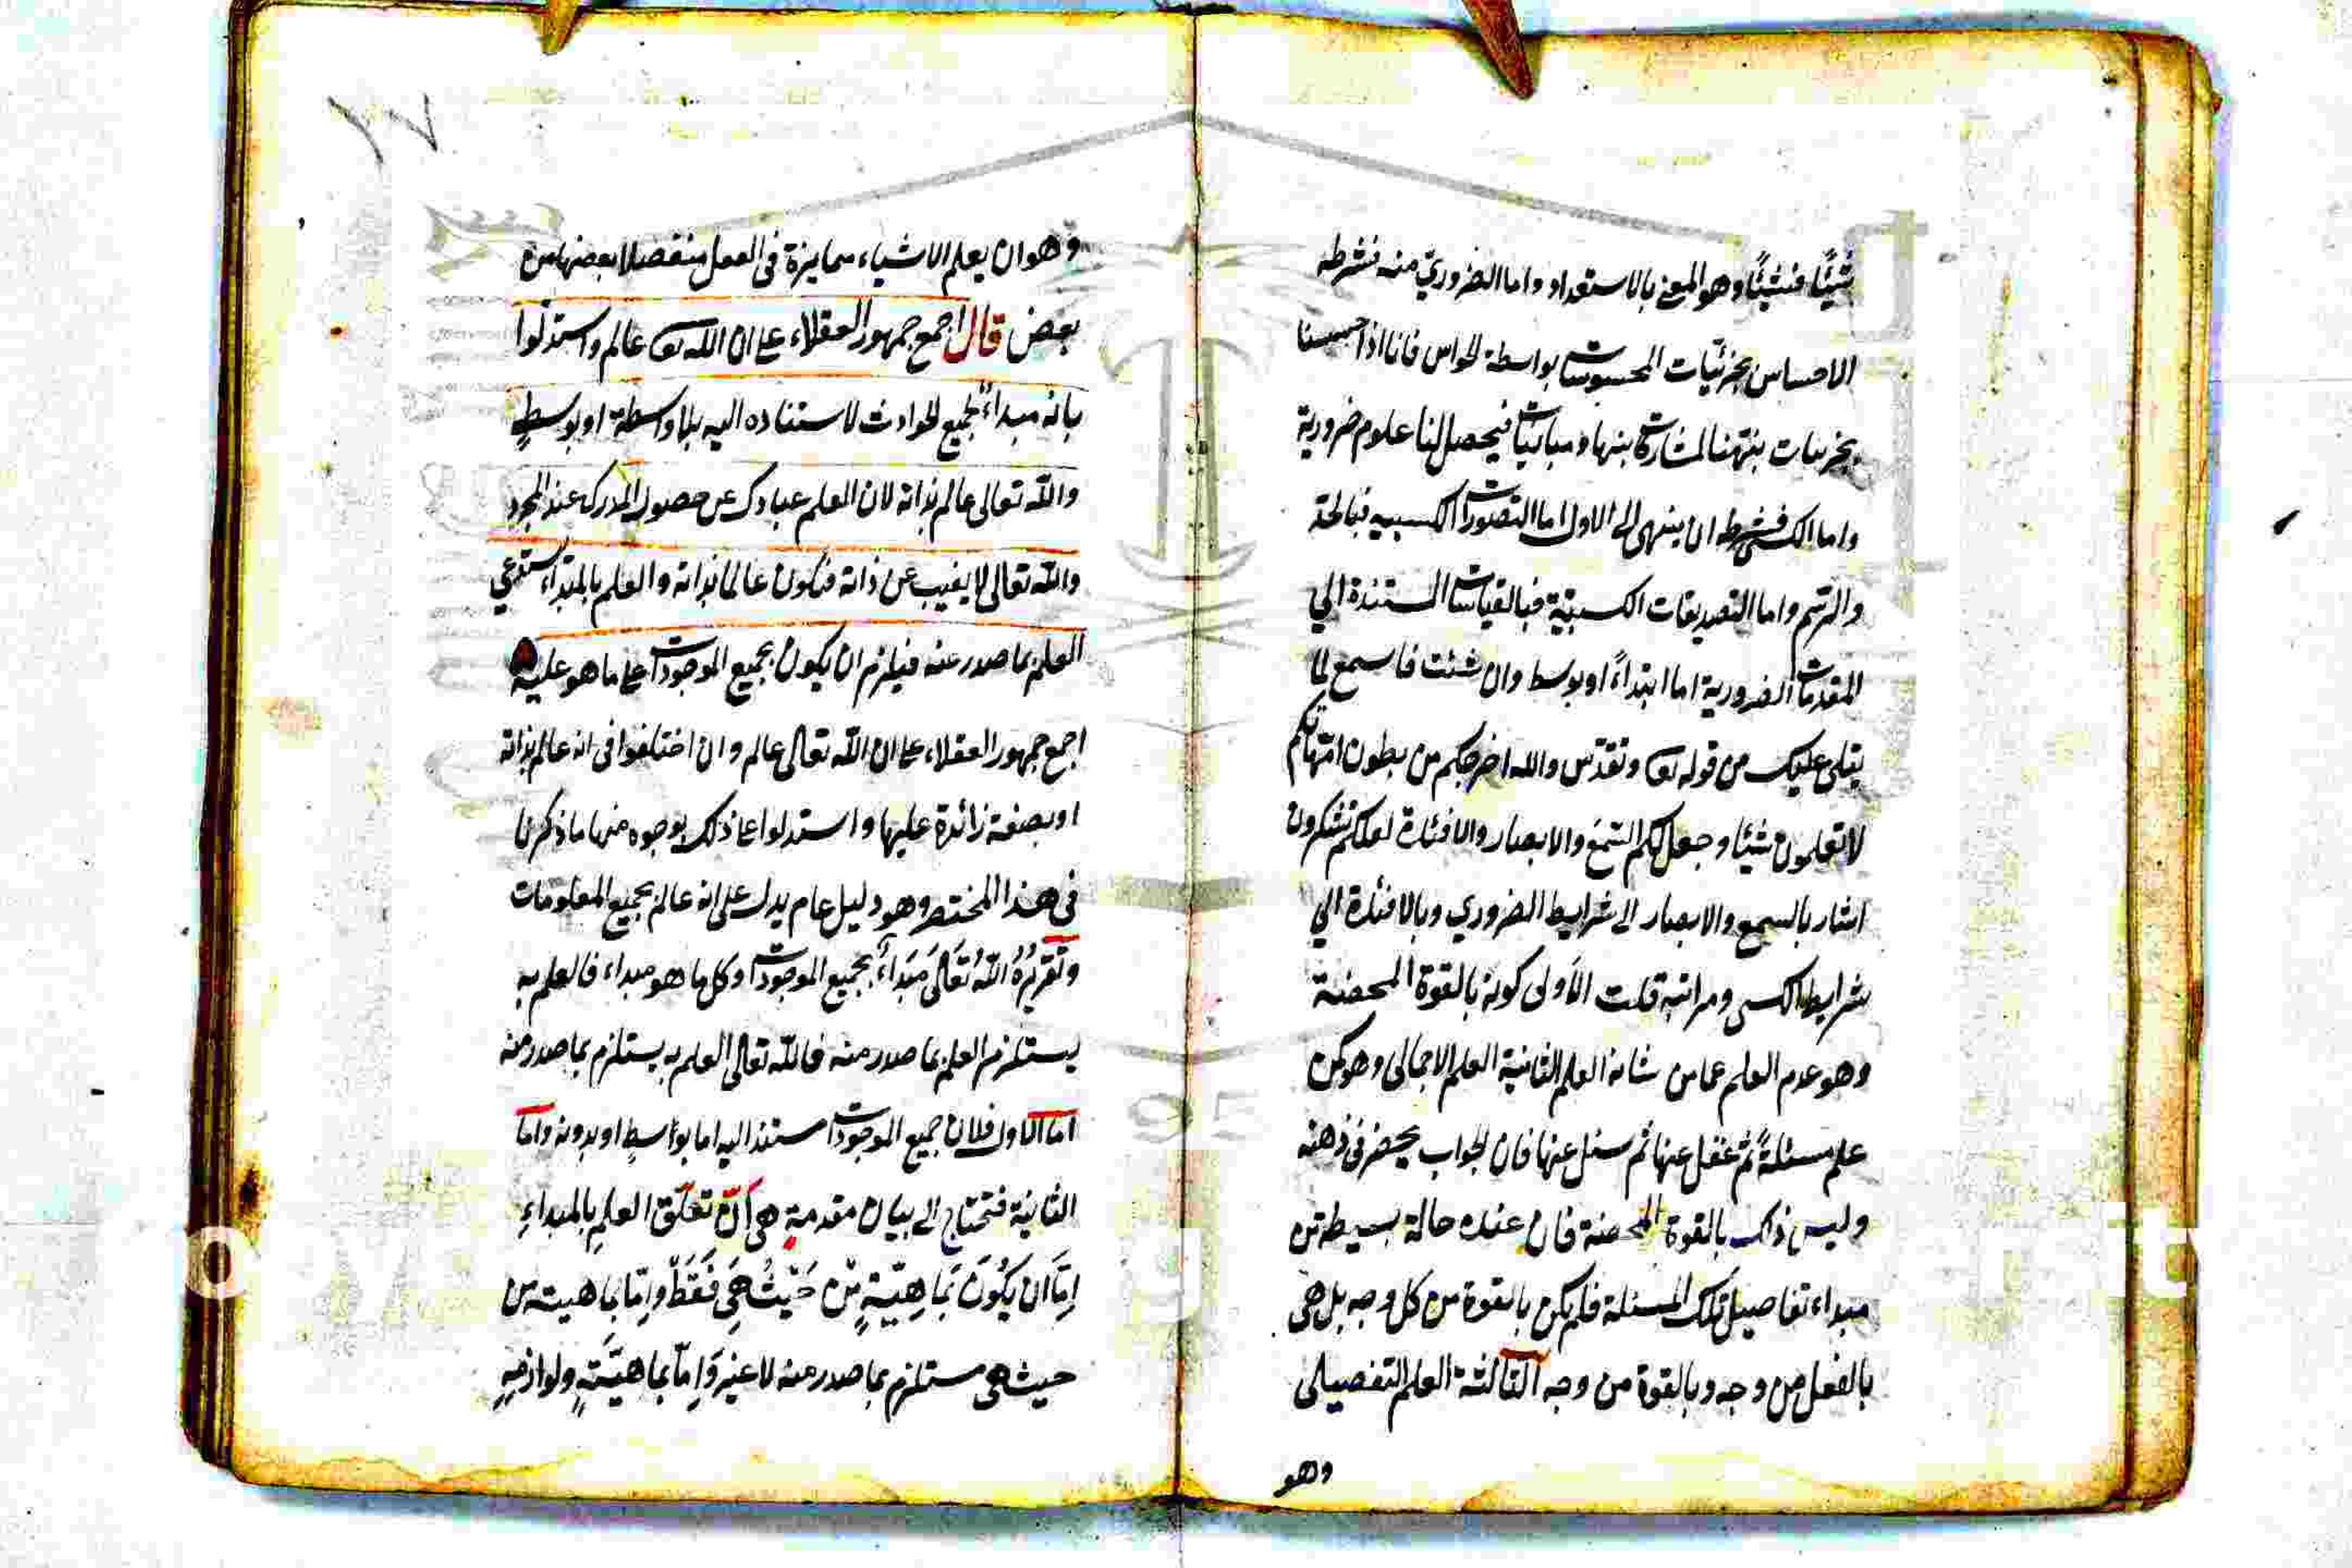 شيئًا فشيئًا وهو المعنى بالاستعداد واما الضروري منه فشرطه
الاحساس بجزئيات المحسوسات بواسطة الحواس فانا اذا احسسنا
بجزئيات بينها مشاركات ومباينات فيحصل لنا علوم ضرورية
واما الكسبى فشرطه ان ينتهى الى الاول اما التصورات الكسبيه فبالحد
والرسم واما التصديقات الكسبيّة فبالقياسات المستندة الي
المقدمات الضرورية اما ابتداءً او بوسط وان شئت فاسمع لما
يتلى عليك من قوله تعا وتقدّس والله اخرجكم من بطون امّهاتكم
لا تعلمون شيئا وجعل لكم السّمع والابصار والافئدة لعلكم تشكرون
اشار بالسمع والابصار الى شرايط الضروري وبالافئدة الي
شرايط الكسبى ومراتبه ثلث الأولى كونه بالقوة المحضة
وهو عدم العلم عما من شانه العلم الثانية العلم الاجمالى وهو كمن
علم مسئلةً ثم غفل عنها ثم سئل عنها فان الجواب يحضر فى ذهنه
وليس ذلك بالقوة المحضة فان عنده حالة بسيطة من
مبداء تفاصيل تلك المسئلة فلم يكن بالقوة من كل وجه بل هى
بالفعل من وجه وبالقوة من وجه الثالثة العلم التفصيلى
وهو
٧٢
وهو ان يعلم الاشياء متمايزة فى العقل منفصلا بعضها من
بعض قال اجمع جمهور العقلاء على ان الله تعا عالم واستدلوا
بانه مبداءٌ لجميع الحوادث لاستناده اليه بلا واسطة او بوسطٍ
والله تعالى عالم بذاته لان العلم عبارة عن حصول المدرك عند المجرد
والله تعالى لا يغيب عن ذاته فيكون عالما بذاته والعلم بالمبداء يستدعي
العلم بما صدر عنه فيلزم ان يكون بجميع الموجودات على ما هو عليه
اجمع جمهور العقلاء على ان الله تعالى عالم وان اختلفوا فى انه عالم بذاته
او بصفة زائدة عليها واستدلوا على ذلك بوجوه منها ما ذكرنا
فى هذا المختصر وهو دليل عام يدل على انه عالم بجميع المعلومات
وَتَقْريرُهُ اللهُ تَعَالَى مَبْدَاءٌ بجميع الموجودات وكل ما هو مبداء فالعلم به
يستلزم العلم بما صدر منه فالله تعالى العلم به يستلزم بما صدر منه
اما الاول فلان جميع الموجودات مستند اليه اما بواسطٍ او بدونه واما
الثانية فتحتاج الى بيان مقدمةٍ هى انّ تعلّق العلم بالمبداءِ
اِمّا اَن يَكُونَ بَمَاهِيّتِهِ مِنْ حَيْثُ هِيَ فَقَطْ وامّا بماهيته من
حيث هى مستلزم بما صدر عنه لا غير وَاِمّا بماهيّتهِ ولوازمِهِ